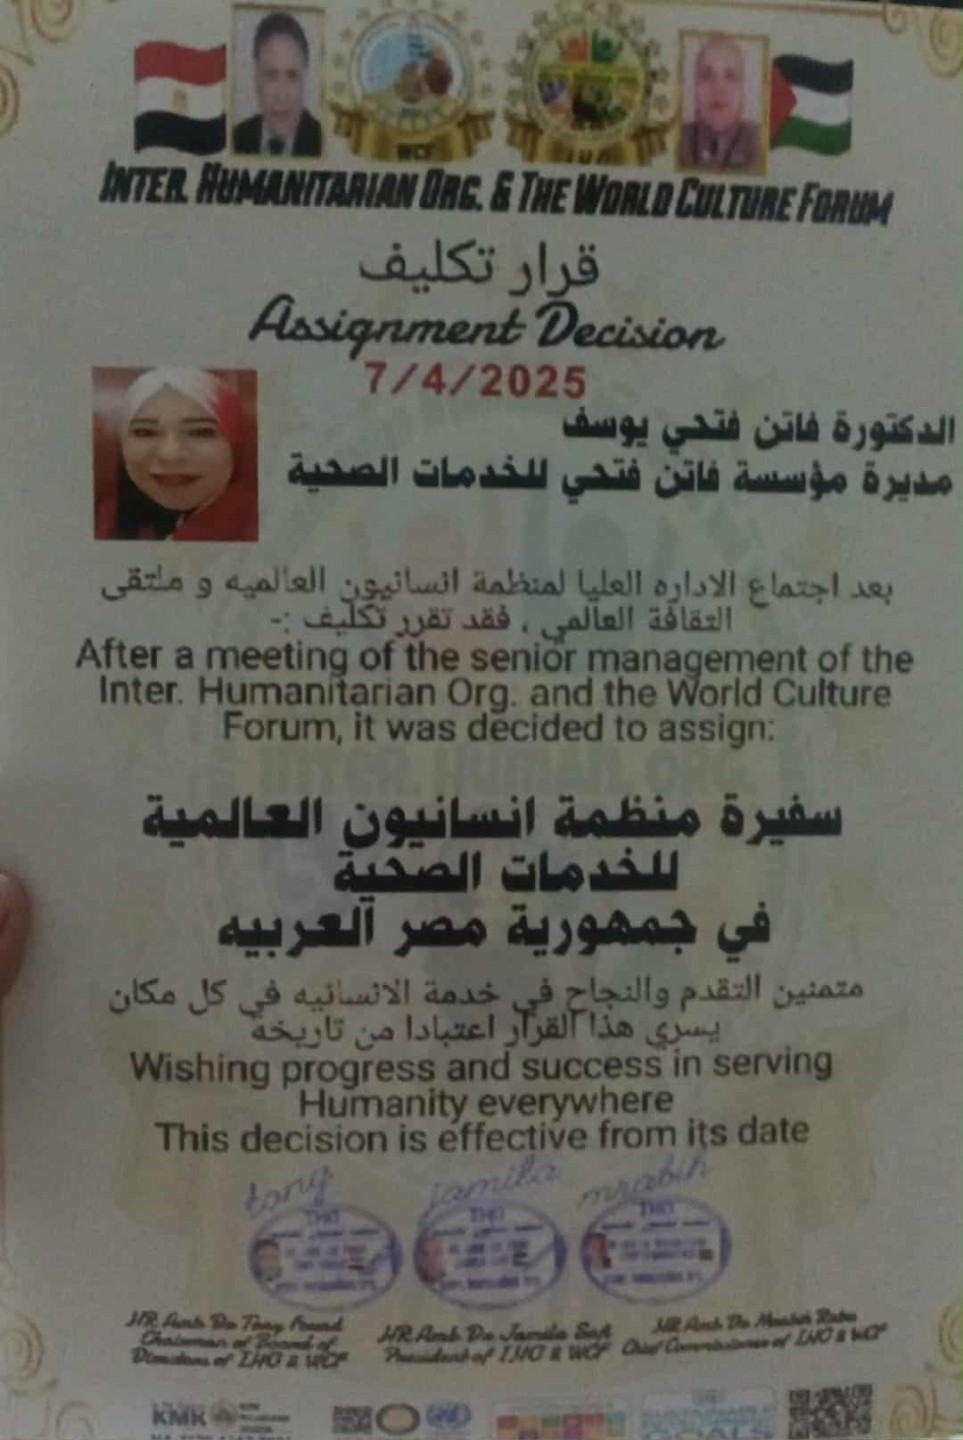 WCF
I.H.O
INTER. HUMANITARIAN ORG. & THE WORLD CULTURE FORUM
قرار تكليف
Assignment Decision
7/4/2025
الدكتورة فاتن فتحي يوسف
مديرة مؤسسة فاتن فتحي للخدمات الصحية
بعد اجتماع الاداره العليا لمنظمة انسانيون العالميه و ملتقى
الثقافة العالمي ، فقد تقرر تكليف :-
After a meeting of the senior management of the
Inter. Humanitarian Org. and the World Culture
Forum, it was decided to assign:
سفيرة منظمة انسانيون العالمية
للخدمات الصحية
في جمهورية مصر العربيه
متمنين التقدم والنجاح في خدمة الانسانيه في كل مكان
يسري هذا القرار اعتبادا من تاريخة
Wishing progress and success in serving
Humanity everywhere
This decision is effective from its date
tony jamila mrabih
THO THO THO
HR Amb Dr Tony
Chairman of Board of
Directors of IHO & WCF
HR Amb Dr Jamila
President of IHO & WCF
HR Amb Dr
Chief Commissioner of IHO & WCF
KMK
GOALS